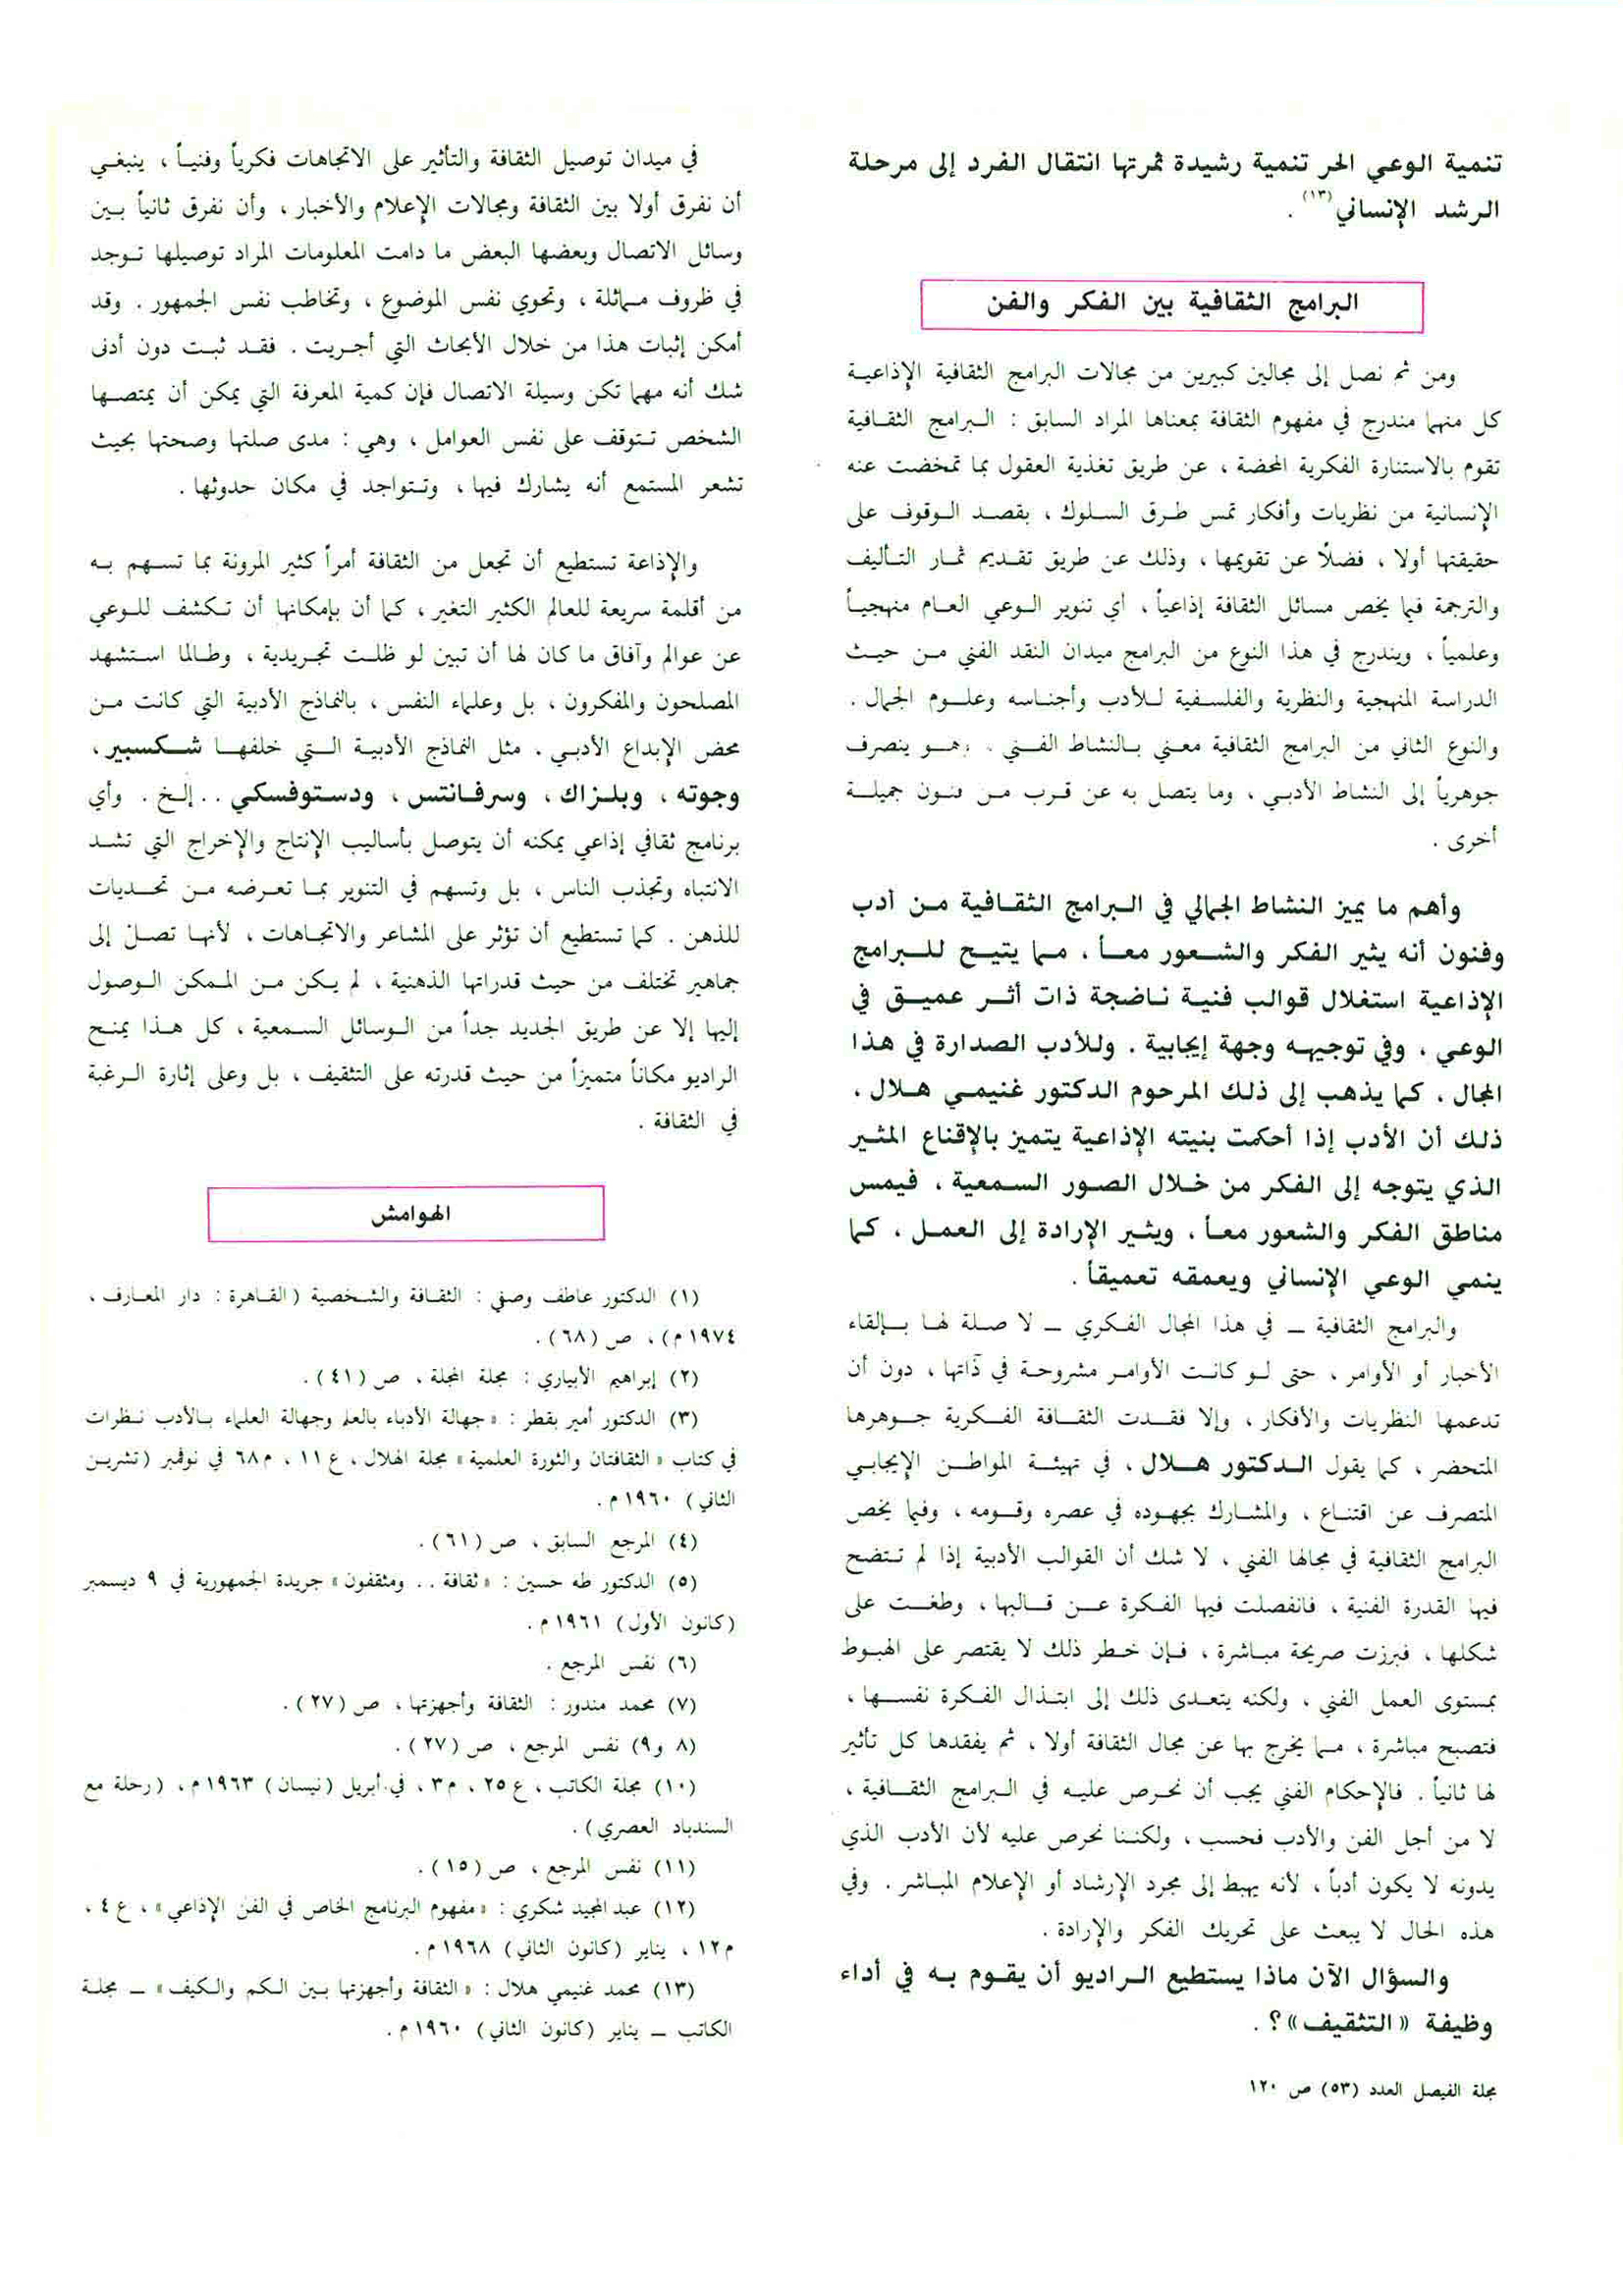 تنمية الوعي الحر تنمية رشيدة ثمرتها انتقال الفرد إلى مرحلة
الرشد الإنساني(١٣) .
البرامج الثقافية بين الفكر والفن
ومن ثم نصل إلى مجالين كبيرين من مجالات البرامج الثقافية الإذاعية
كل منهما مندرج في مفهوم الثقافة بمعناها المراد السابق : البرامج الثقافية
تقوم بالاستنارة الفكرية المحضة ، عن طريق تغذية العقول بما تمخضت عنه
الإنسانية من نظريات وأفكار تمس طرق السلوك ، بقصد الوقوف على
حقيقتها أولا ، فضلاً عن تقويمها ، وذلك عن طريق تقديم ثمار التأليف
والترجمة فيما يخص مسائل الثقافة إذاعياً ، أي تنوير الوعي العام منهجياً
وعلمياً ، ويندرج في هذا النوع من البرامج ميدان النقد الفني من حيث
الدراسة المنهجية والنظرية والفلسفية للأدب وأجناسه وعلوم الجمال .
والنوع الثاني من البرامج الثقافية معني بالنشاط الفني . وهو ينصرف
جوهرياً إلى النشاط الأدبي ، وما يتصل به عن قرب من فنون جميلة
أخرى .
وأهم ما يميز النشاط الجمالي في البرامج الثقافية من أدب
وفنون أنه يثير الفكر والشعور معاً ، مما يتيح للبرامج
الإذاعية استغلال قوالب فنية ناضجة ذات أثر عميق في
الوعي ، وفي توجيهه وجهة إيجابية . وللأدب الصدارة في هذا
المجال ، كما يذهب إلى ذلك المرحوم الدكتور غنيمي هلال ،
ذلك أن الأدب إذا أحكمت بنيته الإذاعية يتميز بالإقناع المثير
الذي يتوجه إلى الفكر من خلال الصور السمعية ، فيمس
مناطق الفكر والشعور معاً ، ويثير الإرادة إلى العمل ، كما
ينمي الوعي الإنساني ويعمقه تعميقاً .
والبرامج الثقافية ــ في هذا المجال الفكري ــ لا صلة لها بإلقاء
الأخبار أو الأوامر ، حتى لو كانت الأوامر مشروحة في ذاتها ، دون أن
تدعمها النظريات والأفكار ، وإلا فقدت الثقافة الفكرية جوهرها
المتحضر ، كما يقول الدكتور هلال ، في تهيئة المواطن الإيجابي
المتصرف عن اقتناع ، والمشارك بجهوده في عصره وقومه ، وفيما يخص
البرامج الثقافية في مجالها الفني ، لا شك أن القوالب الأدبية إذا لم تتضح
فيها القدرة الفنية ، فانفصلت فيها الفكرة عن قالبها ، وطغت على
شكلها ، فبرزت صريحة مباشرة ، فإن خطر ذلك لا يقتصر على الهبوط
بمستوى العمل الفني ، ولكنه يتعدى ذلك إلى ابتذال الفكرة نفسها ،
فتصبح مباشرة ، مما يخرج بها عن مجال الثقافة أولا ، ثم يفقدها كل تأثير
لها ثانياً . فالإحكام الفني يجب أن نحرص عليه في البرامج الثقافية ،
لا من أجل الفن والأدب فحسب ، ولكننا نحرص عليه لأن الأدب الذي
يدونه لا يكون أدباً ، لأنه يهبط إلى مجرد الإرشاد أو الإعلام المباشر . وفي
هذه الحال لا يبعث على تحريك الفكر والإرادة .
والسؤال الآن ماذا يستطيع الراديو أن يقوم به في أداء
وظيفة «التثقيف»؟ .
في ميدان توصيل الثقافة والتأثير على الاتجاهات فكرياً وفنياً ، ينبغي
أن نفرق أولا بين الثقافة ومجالات الإعلام والأخبار ، وأن نفرق ثانياً بين
وسائل الاتصال وبعضها البعض ما دامت المعلومات المراد توصيلها توجد
في ظروف مماثلة ، وتحوي نفس الموضوع ، وتخاطب نفس الجمهور . وقد
أمكن إثبات هذا من خلال الأبحاث التي أجريت . فقد ثبت دون أدنى
شك أنه مهما تكن وسيلة الاتصال فإن كمية المعرفة التي يمكن أن يمتصها
الشخص تتوقف على نفس العوامل ، وهي : مدى صلتها وصحتها بحيث
تشعر المستمع أنه يشارك فيها ، وتتواجد في مكان حدوثها .
والإذاعة تستطيع أن تجعل من الثقافة أمراً كثير المرونة بما تسهم به
من أقلمة سريعة للعالم الكثير التغير ، كما أن بإمكانها أن تكشف للوعي
عن عوالم وآفاق ما كان لها أن تبين لو ظلت تجريدية ، وطالما استشهد
المصلحون والمفكرون ، بل وعلماء النفس ، بالنماذج الأدبية التي كانت من
محض الإبداع الأدبي . مثل النماذج الأدبية التي خلفها شكسبير ،
وجوته ، وبلزاك ، وسرفانتس ، ودستوفسكي . . إلخ . وأي
برنامج ثقافي إذاعي يمكنه أن يتوصل بأساليب الإنتاج والإخراج التي تشد
الانتباه وتجذب الناس ، بل وتسهم في التنوير بما تعرضه من تحديات
للذهن . كما تستطيع أن تؤثر على المشاعر والاتجاهات ، لأنها تصل إلى
جماهير تختلف من حيث قدراتها الذهنية ، لم يكن من الممكن الوصول
إليها إلا عن طريق الجديد جداً من الوسائل السمعية ، كل هذا يمنح
الراديو مكاناً متميزاً من حيث قدرته على التثقيف ، بل وعلى إثارة الرغبة
في الثقافة .
الهوامش
(١) الدكتور عاطف وصفي : الثقافة والشخصية (القاهرة : دار المعارف ،
١٩٧٤م) ، ص (٦٨) .
(٢) إبراهيم الأبياري : مجلة المجلة ، ص (٤١) .
(٣) الدكتور أمير بقطر : «جهالة الأدباء بالعلم وجهالة العلماء بالأدب نظرات
في كتاب «الثقافتان والثورة العلمية» مجلة الهلال ، ع ١١ ، م ٦٨ في نوفمبر (تشرين
الثاني) ١٩٦٠م .
(٤) المرجع السابق ، ص (٦١) .
(٥) الدكتور طه حسين : «ثقافة . . ومثقفون» جريدة الجمهورية في ٩ ديسمبر
(كانون الأول) ١٩٦١م .
(٦) نفس المرجع .
(٧) محمد مندور : الثقافة وأجهزتها ، ص (٢٧) .
(٨ و٩) نفس المرجع ، ص (٢٧) .
(١٠) مجلة الكاتب ، ع ٢٥ ، م ٣ ، في أبريل (نيسان) ١٩٦٣م ، (رحلة مع
السندباد العصري) .
(١١) نفس المرجع ، ص (١٥) .
(١٢) عبد المجيد شكري : «مفهوم البرنامج الخاص في الفن الإذاعي» ، ع ٤ ،
م ١٢ ، يناير (كانون الثاني) ١٩٦٨م .
(١٣) محمد غنيمي هلال : «الثقافة وأجهزتها بين الكم والكيف» ــ مجلة
الكاتب ــ يناير (كانون الثاني) ١٩٦٠م .
مجلة الفيصل العدد (٥٣) ص ١٢٠